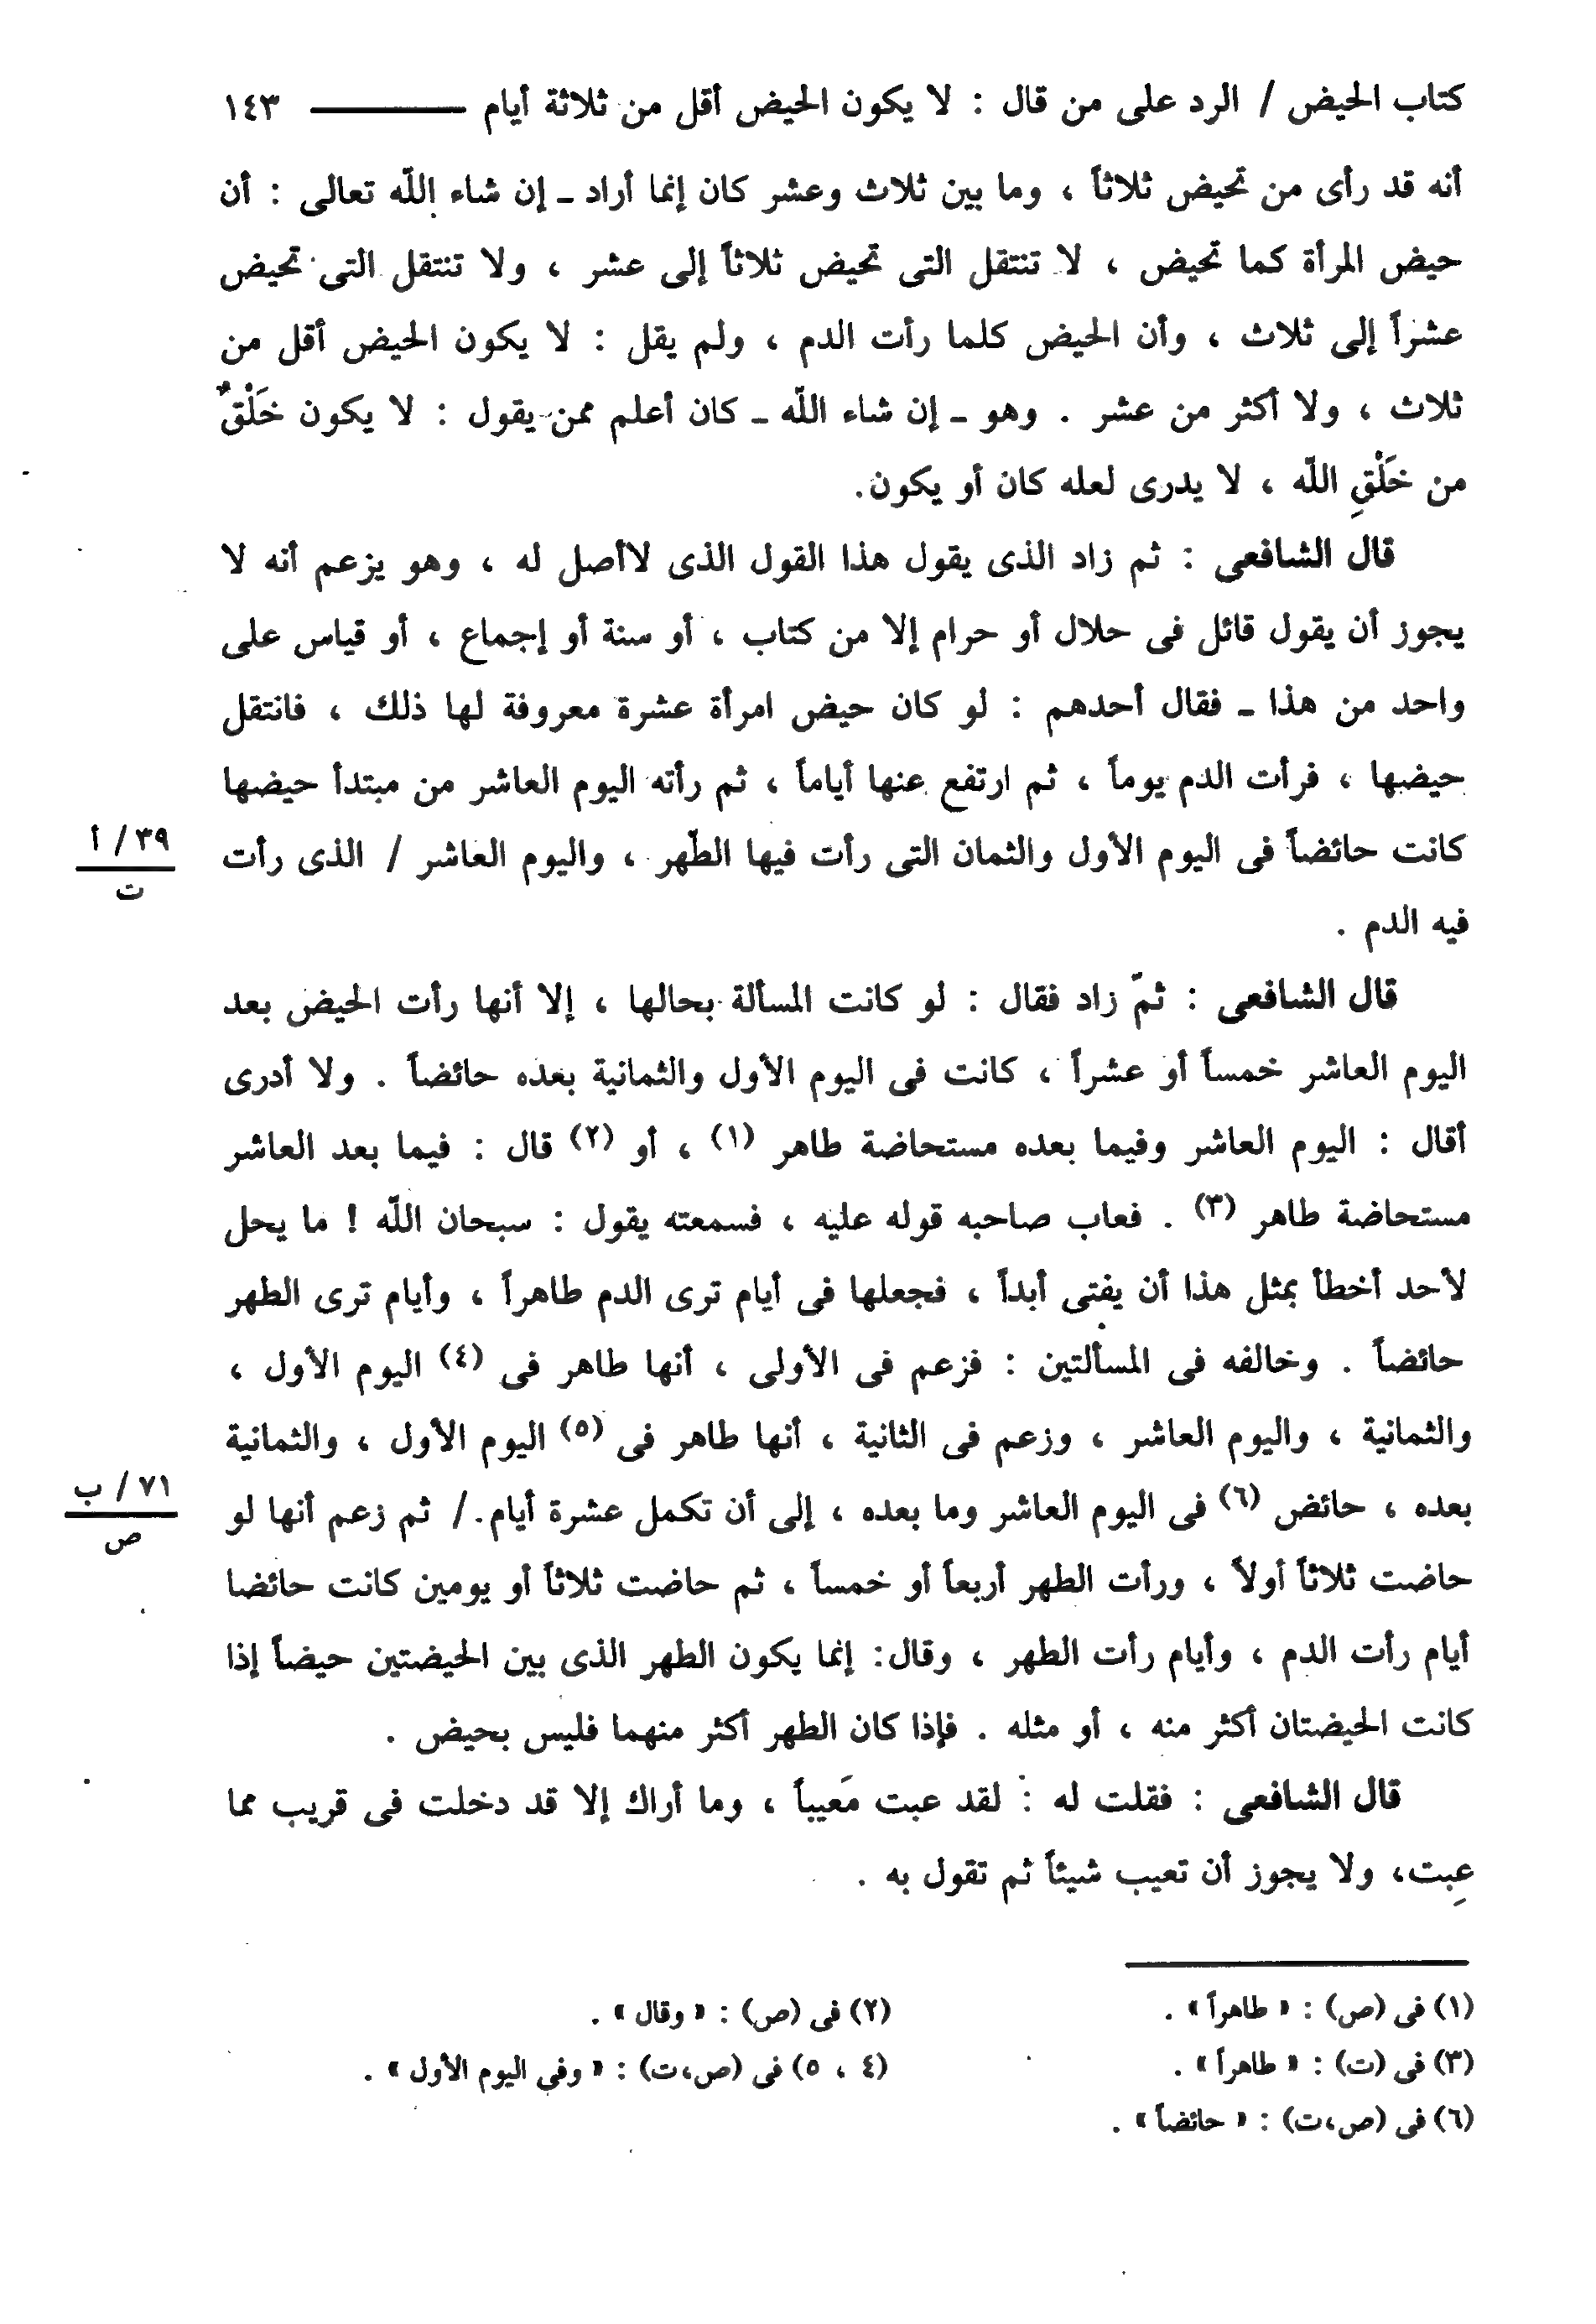 كتاب الحيض / الرد على من قال : لا يكون الحيض أقل من ثلاثة أيام ــــــــــ ١٤٣
أنه قد رأى من تحيض ثلاثاً ، وما بين ثلاث وعشر كان إنما أراد ـ إن شاء اللّه تعالى : أن
حيض المرأة كما تحيض ، لا تنتقل التى تحيض ثلاثاً إلى عشر ، ولا تنتقل التى تحيض
عشراً إلى ثلاث ، وأن الحيض كلما رأت الدم ، ولم يقل : لا يكون الحيض أقل من
ثلاث ، ولا أكثر من عشر . وهو ـ إن شاء اللّه ـ كان أعلم ممن يقول : لا يكون خَلْقٌ
من خَلْقِ اللّه ، لا يدرى لعله كان أو يكون.
قال الشافعى : ثم زاد الذى يقول هذا القول الذى لاأصل له ، وهو يزعم أنه لا
يجوز أن يقول قائل فى حلال أو حرام إلا من كتاب ، أو سنة أو إجماع ، أو قياس على
واحد من هذا ـ فقال أحدهم : لو كان حيض امرأة عشرة معروفة لها ذلك ، فانتقل
حيضها ، فرأت الدم يوماً ، ثم ارتفع عنها أياماً ، ثم رأته اليوم العاشر من مبتدأ حيضها
كانت حائضاً فى اليوم الأول والثمان التى رأت فيها الطّهر ، واليوم العاشر / الذى رأت
٣٩ / أ
ت
فيه الدم .
قال الشافعى : ثمّ زاد فقال : لو كانت المسألة بحالها ، إلا أنها رأت الحيض بعد
اليوم العاشر خمساً أو عشراً ، كانت فى اليوم الأول والثمانية بعده حائضاً . ولا أدرى
أقال : اليوم العاشر وفيما بعده مستحاضة طاهر (١) ، أو (٢) قال : فيما بعد العاشر
مستحاضة طاهر (٣) . فعاب صاحبه قوله عليه ، فسمعته يقول : سبحان اللّه ! ما يحل
لأحد أخطأ بمثل هذا أن يفتى أبداً ، فجعلها فى أيام ترى الدم طاهراً ، وأيام ترى الطهر
حائضاً . وخالفه فى المسألتين : فزعم فى الأولى ، أنها طاهر فى (٤) اليوم الأول ،
والثمانية ، واليوم العاشر ، وزعم فى الثانية ، أنها طاهر فى (٥) اليوم الأول ، والثمانية
بعده ، حائض (٦) فى اليوم العاشر وما بعده ، إلى أن تكمل عشرة أيام. / ثم زعم أنها لو
٧١ / ب
ص
حاضت ثلاثاً أولاً ، ورأت الطهر أربعاً أو خمساً ، ثم حاضت ثلاثاً أو يومين كانت حائضا
أيام رأت الدم ، وأيام رأت الطهر ، وقال: إنما يكون الطهر الذى بين الحيضتين حيضاً إذا
كانت الحيضتان أكثر منه ، أو مثله . فإذا كان الطهر أكثر منهما فليس بحيض .
قال الشافعى : فقلت له : لقد عبت مَعيباً ، وما أراك إلا قد دخلت فى قريب مما
عِبت، ولا يجوز أن تعيب شيئاً ثم تقول به .
(١) فى (ص) : « طاهراً » .
(٢) فى (ص) : « وقال » .
(٣) فى (ت) : « طاهراً » .
(٤ ، ٥) فى (ص،ت) : « وفى اليوم الأول » .
(٦) فى (ص،ت) : « حائضاً » .